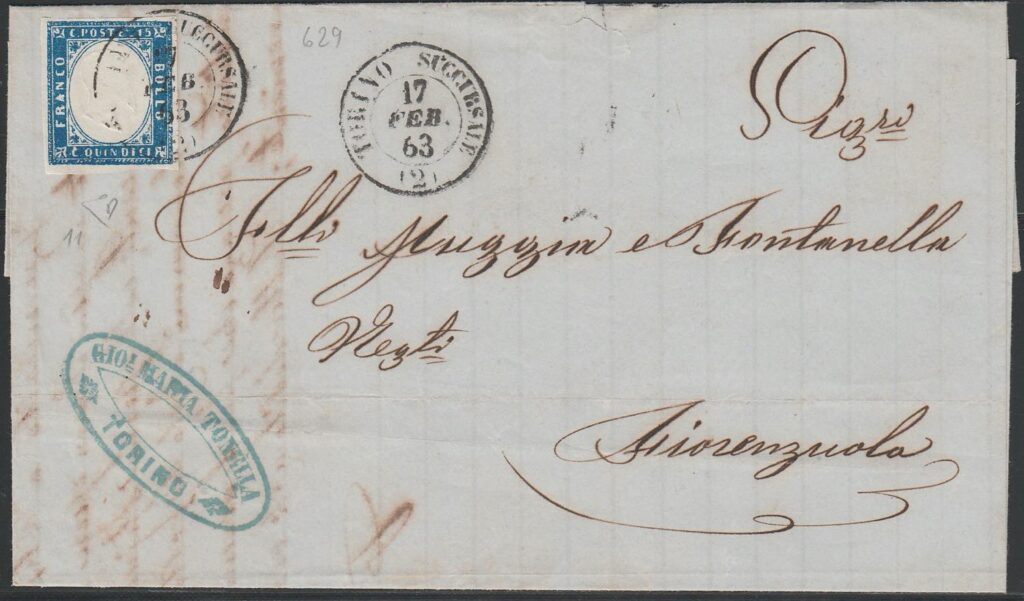 C. POSTE 15
FRANCO
BOLLO
C. QUINDICI
17
FEB.
63
(2)
629
TORINO SUCCURSALE
17
FEB.
63
(2)
Sigri
Flli Muggia e Fontanella
Negti
Fiorenzuola
11
GIO! MARIA
TORINO